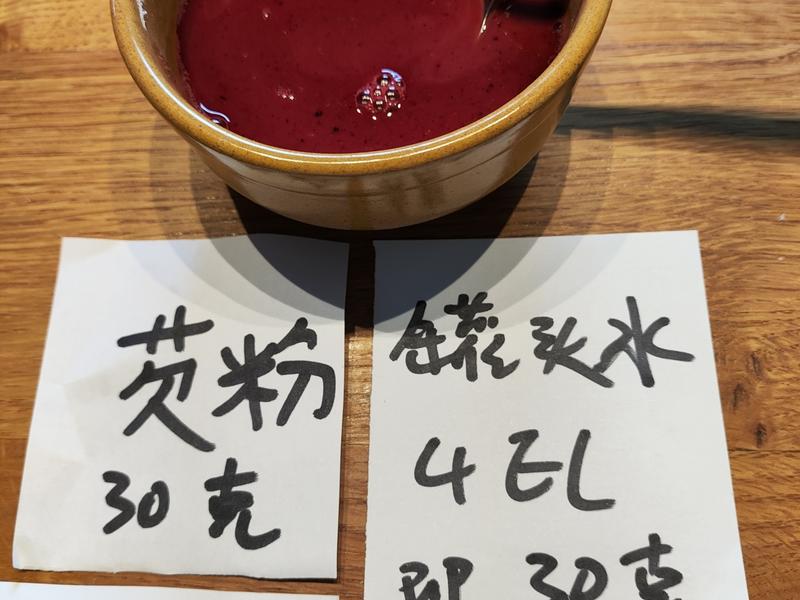 芡粉
30克
罐头水
4 EL
即 30克